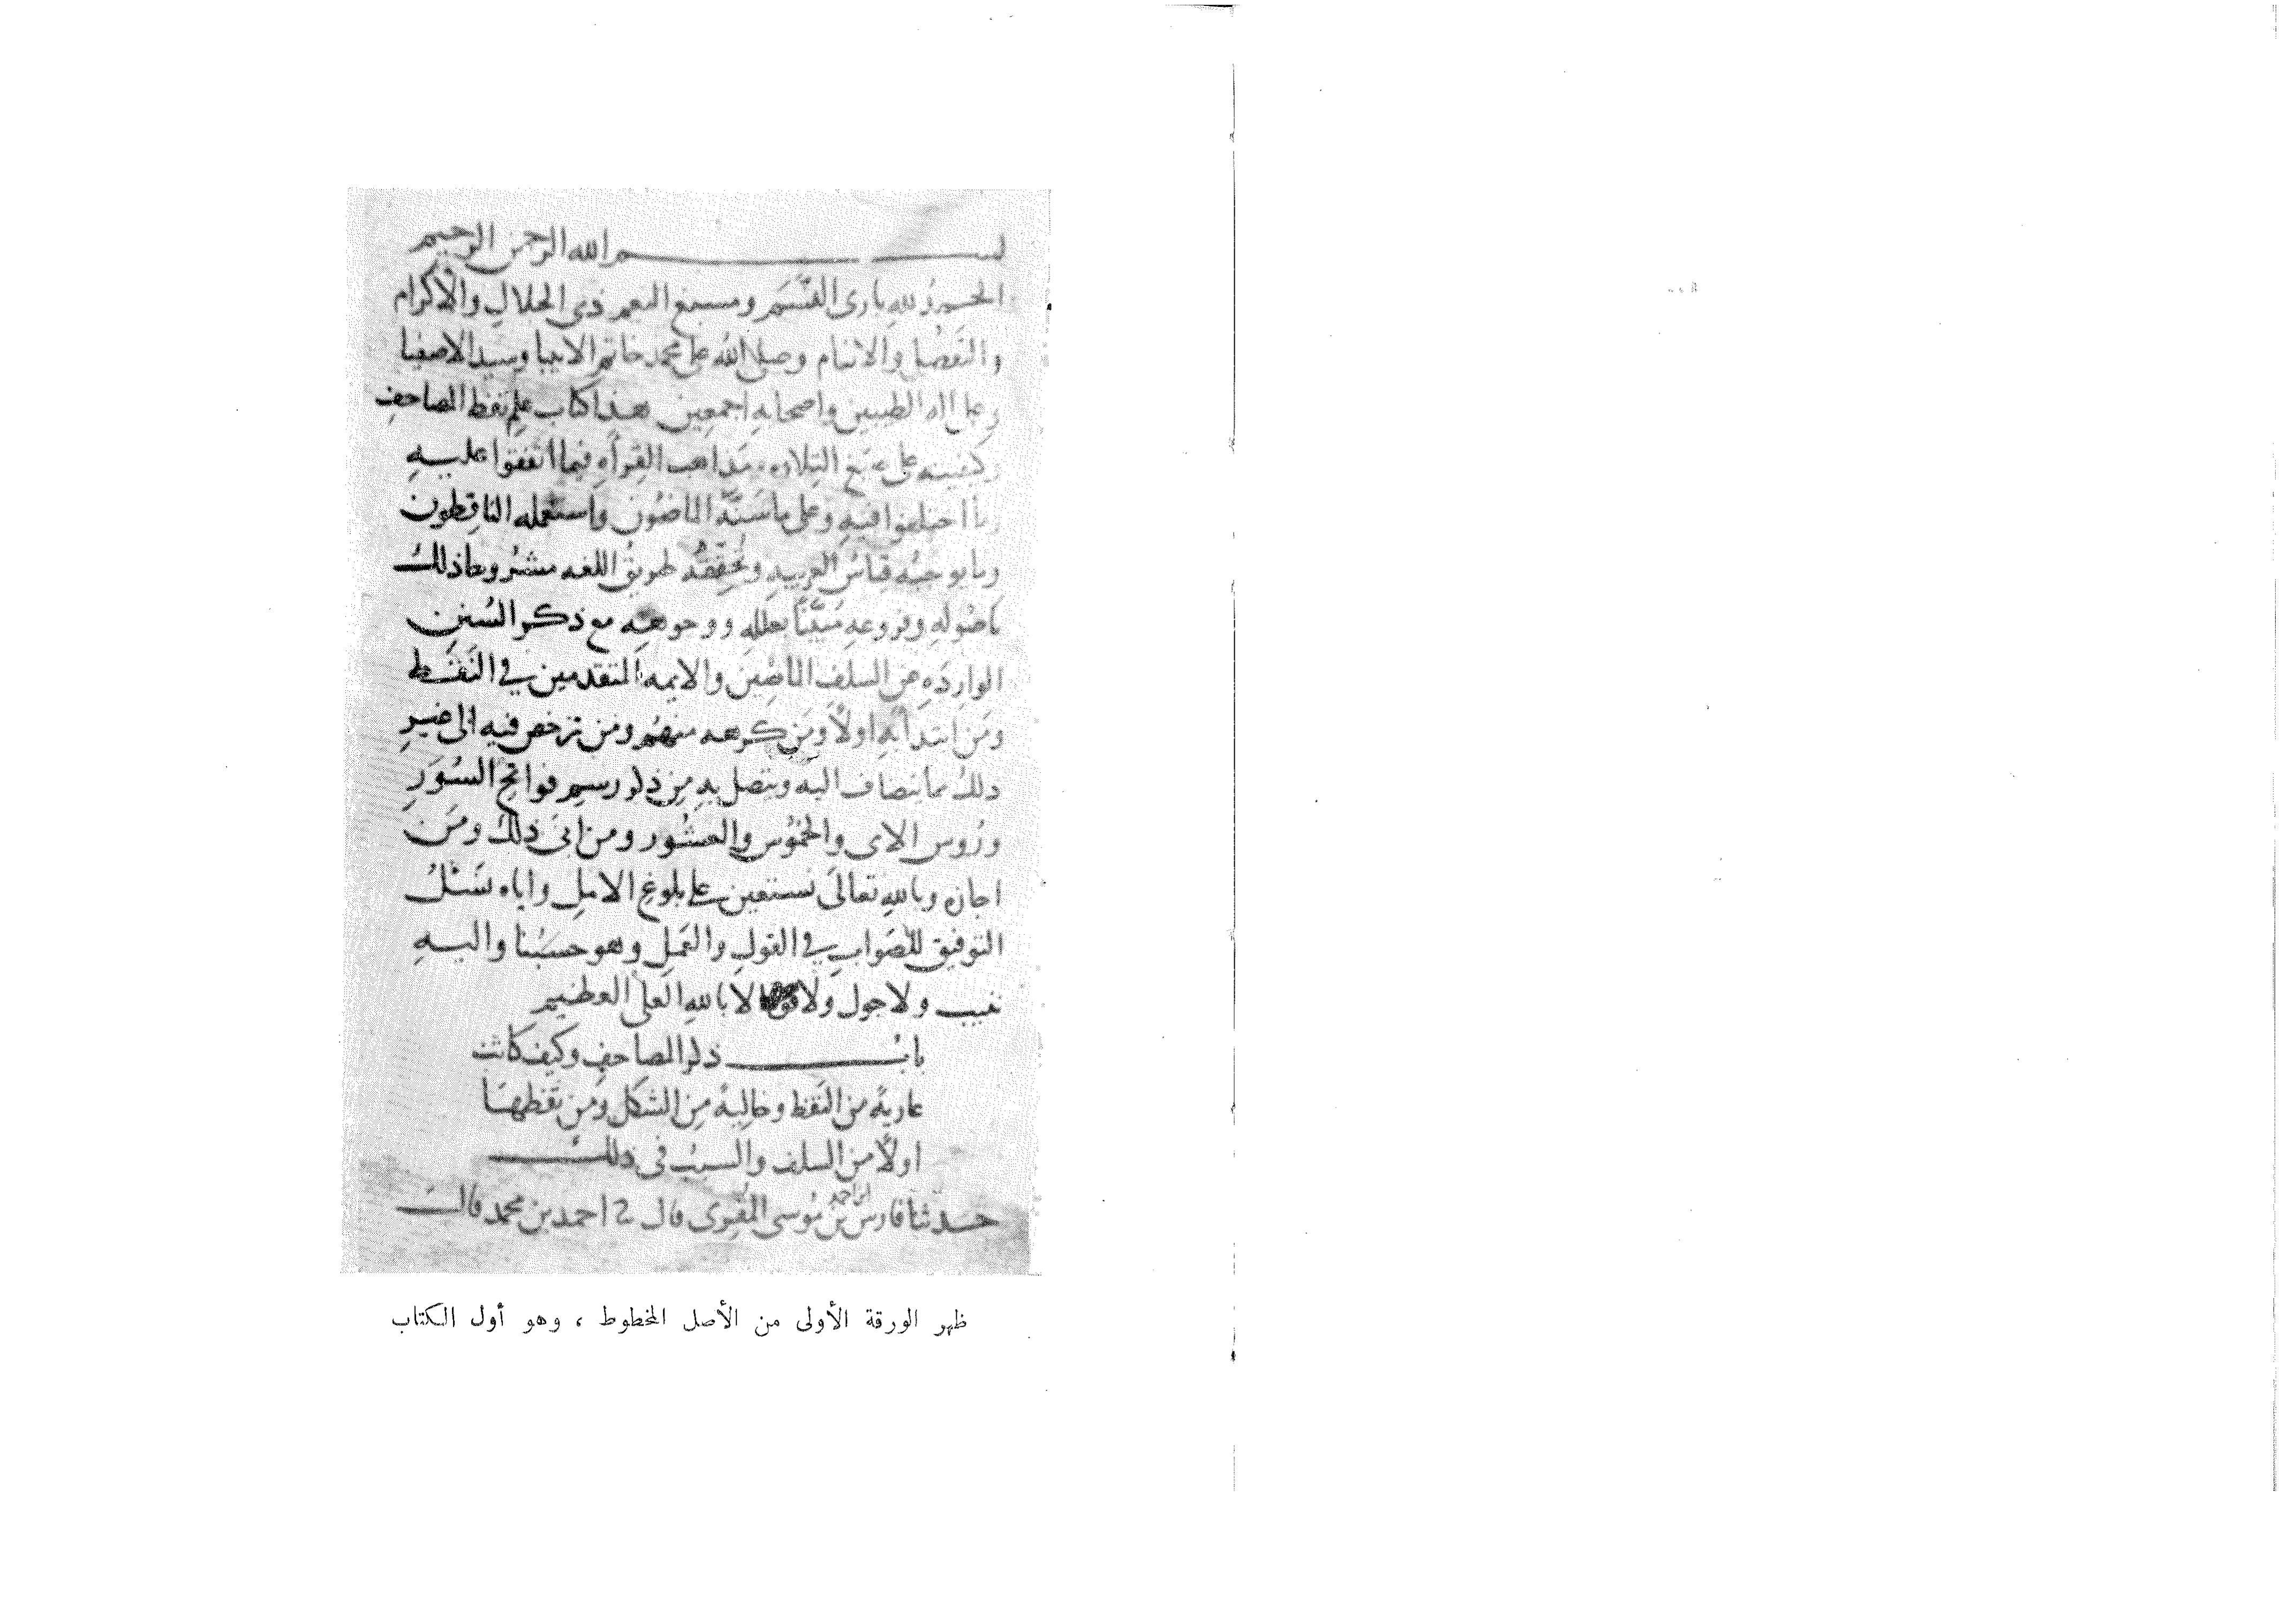 بســـــم الله الرحمن الرحيم
الحمد لله بارى النَّسَم ومسبغ النعم ذى الجلالِ والاكرام
والتفضل والانعام وصلى الله على محمد خاتم الانبيا وسيد الاصفيا
وعلى اله الطيبين واصحابهِ اجمعين هذا كتاب علم نقط المصاحفِ
وكيفيته على صيغ التلاوه ومذاهب القراهِ فيما اتفقوا عليهِ
وما اختلفوا فيهِ وعلى ما سَنَّه الماضُون واستعمله الناقِطون
وما يوجبُه قياسُ العربيهِ وتُحقِّقُه طريقُ اللغه مشروحا ذلك
باصُولهِ وفروعهِ مُبيَّناً بعللهِ ووجوهه مع ذكر السُنن
الوارِدَهِ عن السلفِ الماضِين والايمه المتقدمين في النَّقْط
ومَن ابتدا بهِ اولاً ومَن كرهه منهُم ومن ترخص فيه الى غير
ذلك مما ينضاف اليه ويتصل بهِ مِن ذكر رسم فواتحِ السُوَرِ
ورُوس الاى والخُمُوس والعشُور ومن ابىَ ذلك ومَن
اجازه وبالله تعالىَ نستعين على بلوغِ الاملِ واياه نَسْئلُ
التوفيق للصَوابِ في القولِ والعَملِ وهو حسبُنا واليهِ
ننيب ولا حول ولا قوة الا بالله العلى العظيم
بابُ ـــــ ذكر المصاحفِ وكيف كانت
عاريةً من النَقط وخاليةً مِن الشكل ومَن نقطهَا
اولاً من السلف والسببُ في ذلك
حدثنا فارس بن احمد بن مُوسى المُقرِى قال نا احمد بن محمد قال
ظهر الورقة الأولى من الأصل المخطوط ، وهو أول الكتاب